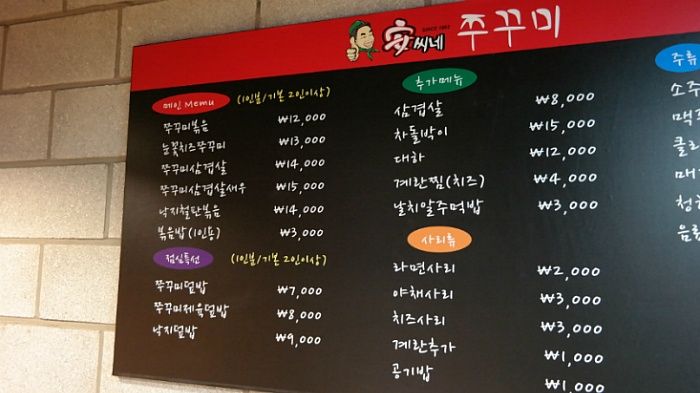 SINCE
安씨네 쭈꾸미
메인 Memu (1인분/기본 2인이상)
쭈꾸미볶음 ₩12,000
눈꽃치즈쭈꾸미 ₩13,000
쭈꾸미삼겹살 ₩14,000
쭈꾸미삼겹살새우 ₩15,000
낙지철판볶음 ₩14,000
볶음밥(1인용) ₩3,000
점심특선 (1인분/기본 2인이상)
쭈꾸미덮밥 ₩7,000
쭈꾸미제육덮밥 ₩8,000
낙지덮밥 ₩9,000
추가메뉴
삼겹살 ₩8,000
차돌박이 ₩15,000
대하 ₩12,000
계란찜(치즈) ₩4,000
날치알주먹밥 ₩3,000
사리류
라면사리 ₩2,000
야채사리 ₩3,000
치즈사리 ₩3,000
계란추가 ₩1,000
공기밥 ₩1,000
주류
소주